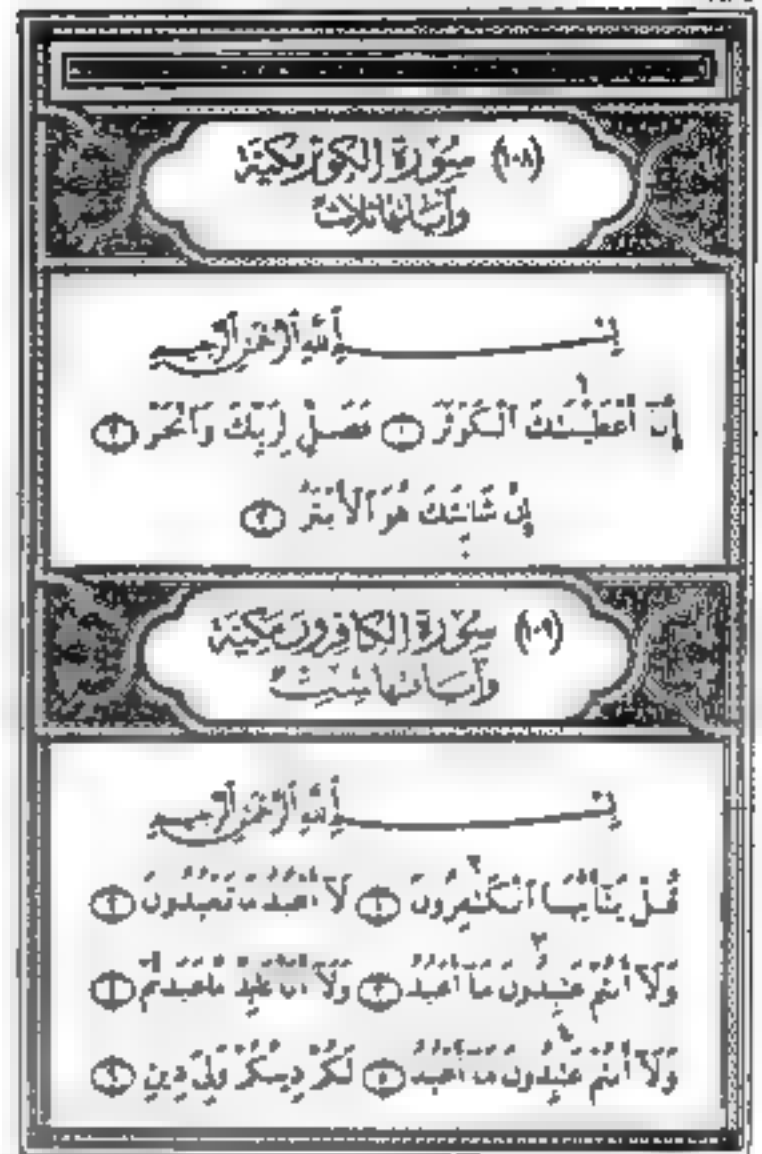 (١٠٨) سورة الكوثر مكية
وآياتها ثلاث
بِسْمِ ٱللَّهِ ٱلرَّحْمَٰنِ ٱلرَّحِيمِ
إِنَّآ أَعْطَيْنَٰكَ ٱلْكَوْثَرَ ١ فَصَلِّ لِرَبِّكَ وَٱنْحَرْ ٢
إِنَّ شَانِئَكَ هُوَ ٱلْأَبْتَرُ ٣
(١٠٩) سورة الكافرون مكية
وآياتها ست
بِسْمِ ٱللَّهِ ٱلرَّحْمَٰنِ ٱلرَّحِيمِ
قُلْ يَٰٓأَيُّهَا ٱلْكَٰفِرُونَ ١ لَآ أَعْبُدُ مَا تَعْبُدُونَ ٢
وَلَآ أَنتُمْ عَٰبِدُونَ مَآ أَعْبُدُ ٣ وَلَآ أَنَا۠ عَابِدٌ مَّا عَبَدتُّمْ ٤
وَلَآ أَنتُمْ عَٰبِدُونَ مَآ أَعْبُدُ ٥ لَكُمْ دِينُكُمْ وَلِىَ دِينِ ٦